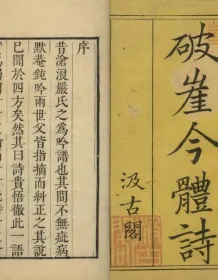 破崖今體詩
汲古閣
序
昔滄浪嚴氏之為吟譜也其間不無疵病
默菴鈍吟兩世父皆指摘而糾正之其説
已聞於四方矣然其曰詩貴悟徹此一語